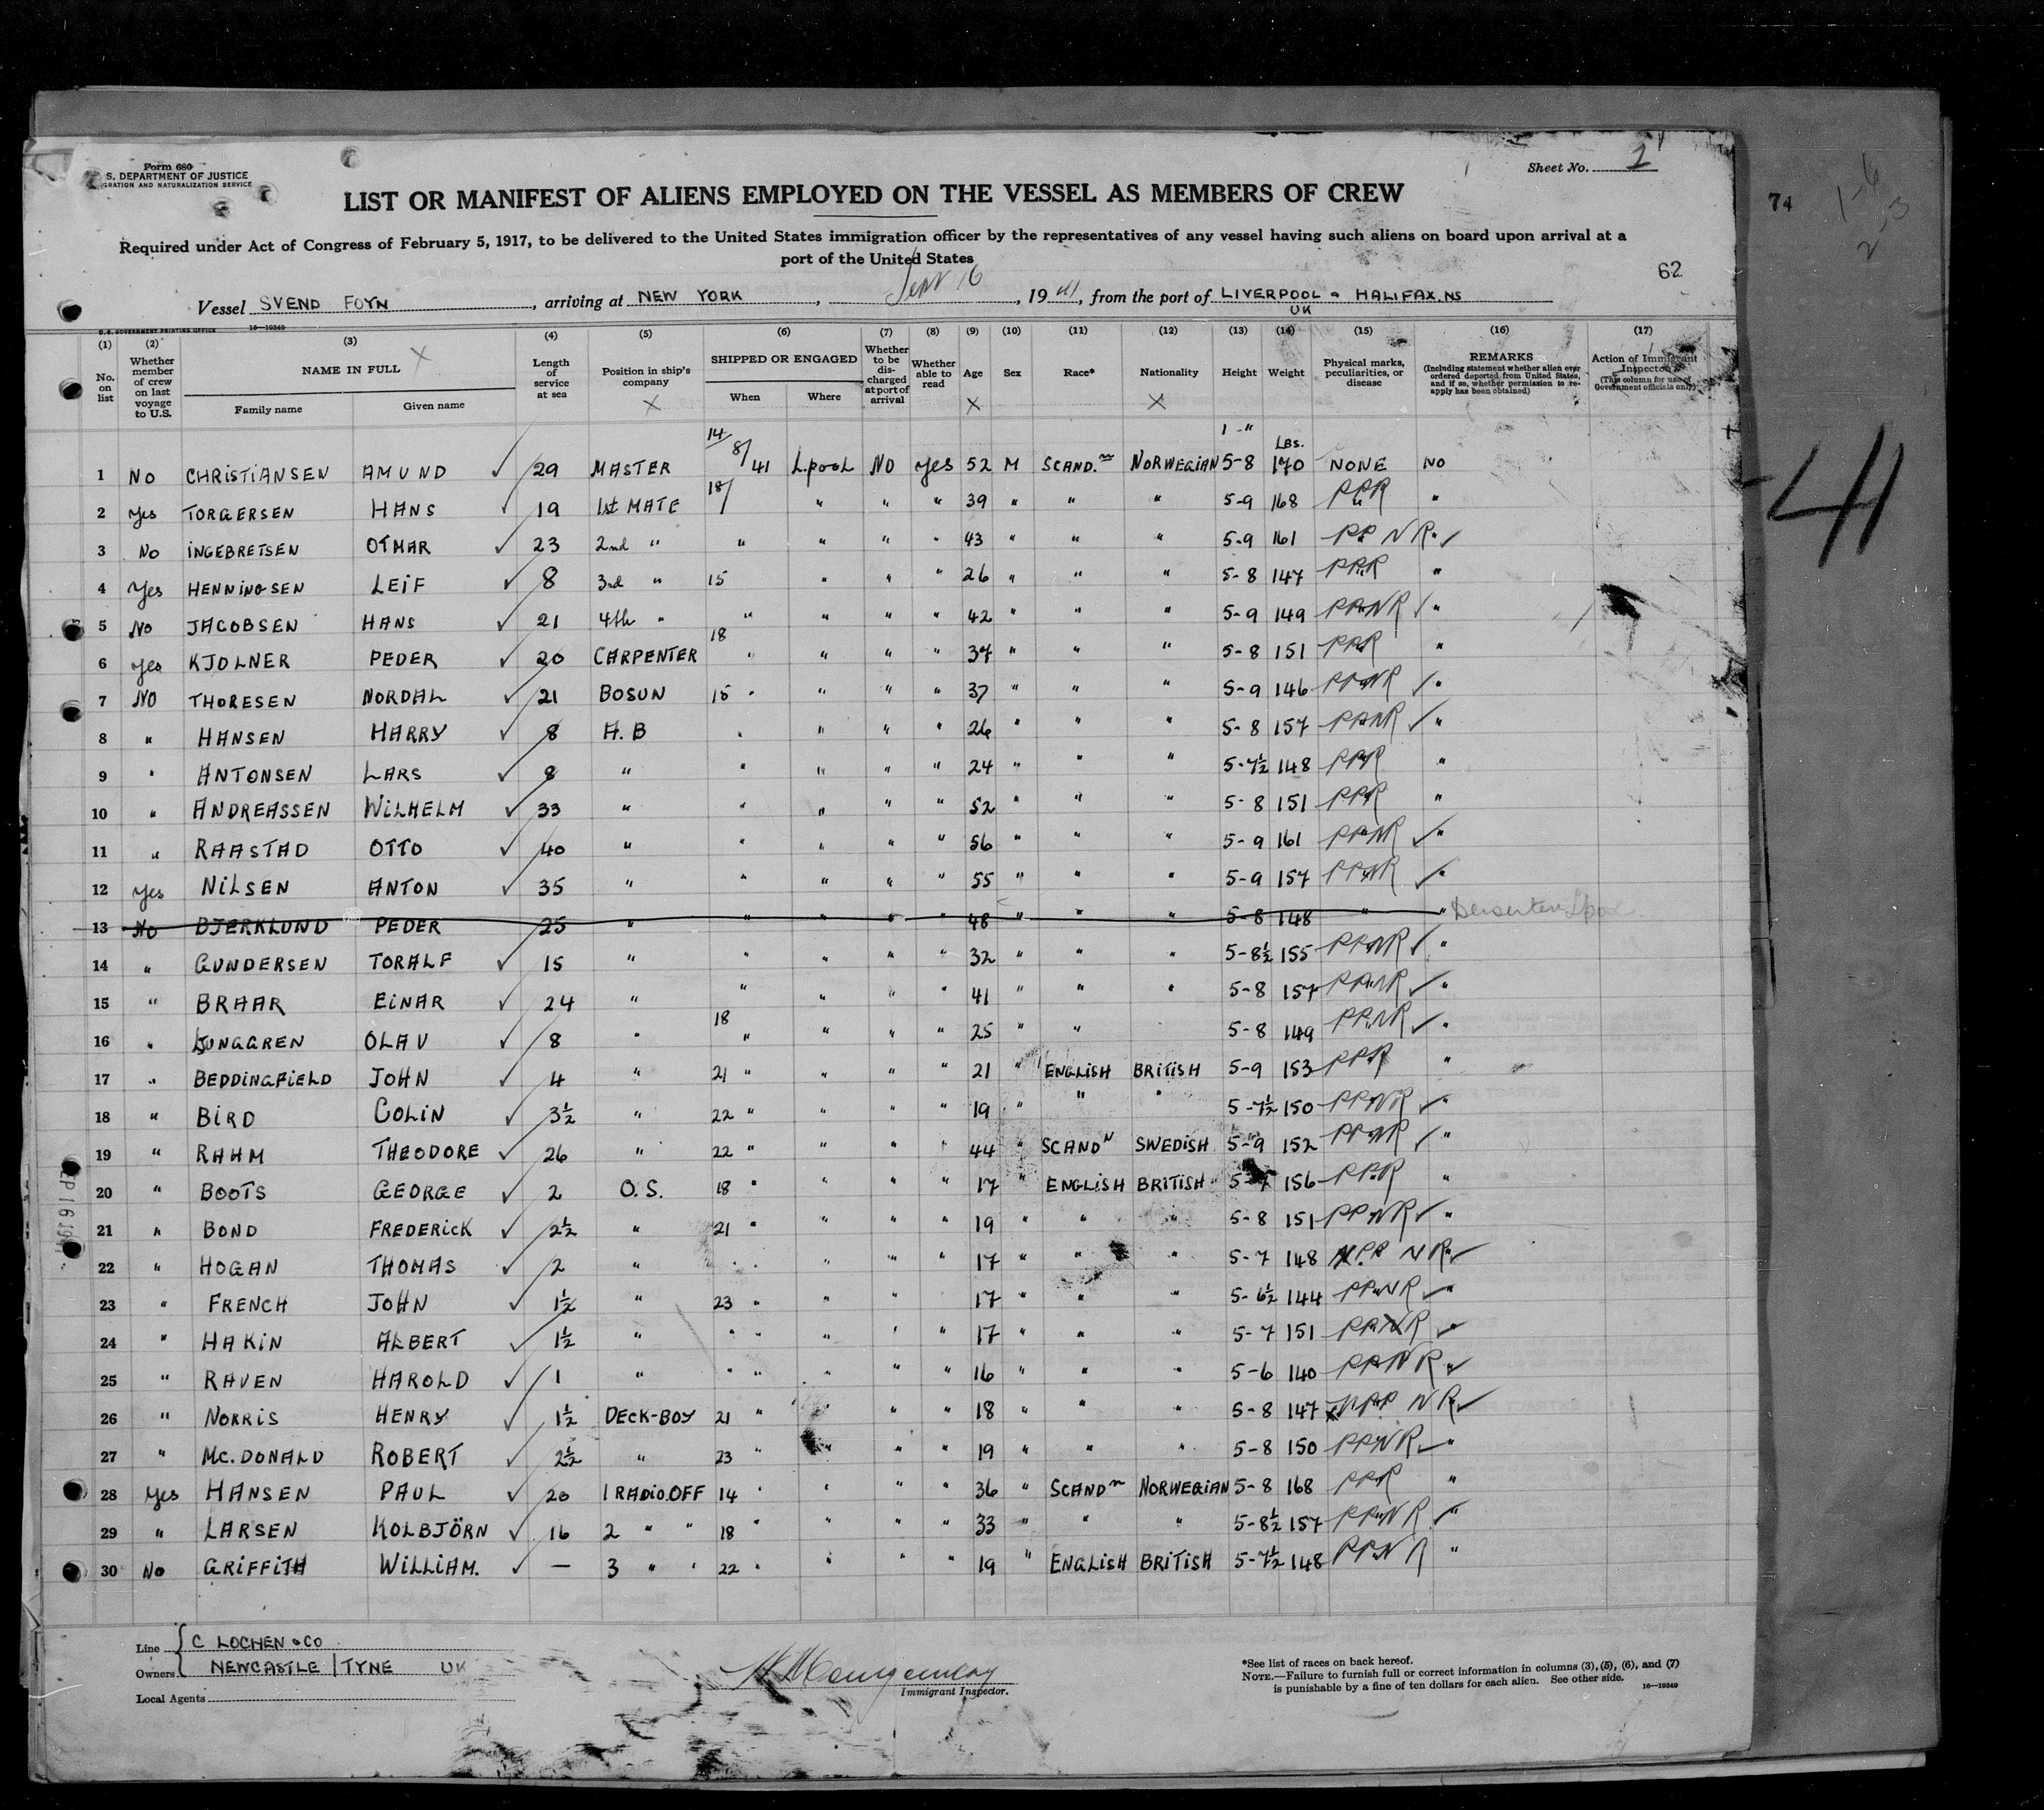 Form 680
S. DEPARTMENT OF JUSTICE
GRATION AND NATURALIZATION SERVICE
Sheet No. 1
LIST OR MANIFEST OF ALIENS EMPLOYED ON THE VESSEL AS MEMBERS OF CREW
74
Required under Act of Congress of February 5, 1917, to be delivered to the United States immigration officer by the representatives of any vessel having such aliens on board upon arrival at a
port of the United States
62
Vessel SVEND FOYN, arriving at NEW YORK, Sept 16, 1941, from the port of LIVERPOOL & HALIFAX. NS
UK
U.S. GOVERNMENT PRINTING OFFICE 16—19349
(1) No. on list
(2) Whether member of crew on last voyage to U.S.
(3) NAME IN FULL Family name Given name
(4) Length of service at sea
(5) Position in ship's company
(6) SHIPPED OR ENGAGED When Where
(7) Whether to be discharged at port of arrival
(8) Whether able to read
(9) Age
(10) Sex
(11) Race*
(12) Nationality
(13) Height
(14) Weight
(15) Physical marks, peculiarities, or disease
(16) REMARKS (Including statement whether alien ever ordered deported from United States, and if so, whether permission to re-apply has been obtained)
(17) Action of Immigrant Inspector (This column for use of Government officials only)
1 NO CHRISTIANSEN AMUND ✓ 29 MASTER 14/8/41 L.pool NO yes 52 M SCAND.n NORWEGIAN 5-8 LBS. 170 NONE NO
2 Yes TORGERSEN HANS ✓ 19 1st MATE 18/ " " " 39 " " " 5-9 168 PPR "
3 No INGEBRETSEN OTMAR ✓ 23 2nd " " " " " 43 " " " 5-9 161 PP NR ✓
4 Yes HENNINGSEN LEIF ✓ 8 3rd " 15 " " " 26 " " " 5-8 147 PPR "
5 No JACOBSEN HANS ✓ 21 4th " " " " " 42 " " " 5-9 149 PPNR ✓ "
6 yes KJOLNER PEDER ✓ 20 CARPENTER 18 " " " " 37 " " " 5-8 151 PPR "
7 NO THORESEN NORDAL ✓ 21 BOSUN 15 " " " " 37 " " " 5-9 146 PPNR ✓ "
8 " HANSEN HARRY ✓ 8 A.B " " " " 26 " " " 5-8 157 PPNR ✓ "
9 " ANTONSEN LARS ✓ 8 " " " " " 24 " " " 5-7½ 148 PPR "
10 " ANDREASSEN WILHELM ✓ 33 " " " " " 52 " " " 5-8 151 PPR "
11 " RAASTAD OTTO ✓ 40 " " " " " 56 " " " 5-9 161 PPNR ✓ "
12 Yes NILSEN ANTON ✓ 35 " " " " " 55 " " " 5-9 157 PPNR ✓ "
13 No BJERKLUND PEDER 25 " " " " " 48 " " " 5-8 148 " "
14 " GUNDERSEN TORALF ✓ 15 " " " " " 32 " " " 5-8½ 155 PPNR ✓ "
15 " BRAAR EINAR ✓ 24 " " " " " 41 " " " 5-8 157 PPNR ✓ "
16 " LJUNGGREN OLAV ✓ 8 " 18 " " " " 25 " " 5-8 149 PPNR ✓ "
17 " BEDDINGFIELD JOHN ✓ 4 " 21 " " " " 21 " ENGLISH BRITISH 5-9 153 PPR "
18 " BIRD COLIN ✓ 3½ " 22 " " " " 19 " " " 5-7½ 150 PPNR ✓ "
19 " RAHM THEODORE ✓ 26 " 22 " " " " 44 " SCANDN SWEDISH 5-9 152 PPNR ✓ "
20 " BOOTS GEORGE ✓ 2 O.S. 18 " " " " 17 " ENGLISH BRITISH 5-7 156 PPR "
21 " BOND FREDERICK ✓ 2½ " 21 " " " " 19 " " " 5-8 151 PPNR ✓ "
22 " HOGAN THOMAS ✓ 2 " " " " " " 17 " " " 5-7 148 N.PP NR ✓
23 " FRENCH JOHN ✓ 1½ " 23 " " " 17 " " " 5-6½ 144 PPNR ✓ "
24 " HAKIN ALBERT ✓ 1½ " " " " " " 17 " " " 5-7 151 PPNR ✓
25 " RAVEN HAROLD ✓ 1 " " " " " " 16 " " " 5-6 140 PPNR ✓
26 " NORRIS HENRY ✓ 1½ DECK-BOY 21 " " " " 18 " " " 5-8 147 NPP NR ✓
27 " MC. DONALD ROBERT ✓ 2½ " 23 " " " " 19 " " " 5-8 150 PPNR ✓ "
28 Yes HANSEN PAUL ✓ 20 1 RADIO.OFF 14 " " " " 36 " SCANDn NORWEGIAN 5-8 168 PPR "
29 " LARSEN KOLBJÖRN ✓ 16 2 " " 18 " " " " 33 " " " 5-8½ 157 PPNR ✓ "
30 No GRIFFITH WILLIAM. ✓ — 3 " " 22 " " " " 19 " ENGLISH BRITISH 5-7½ 148 PPNR "
Line C LOCHEN & CO
Owners NEWCASTLE / TYNE UK
Local Agents
Immigrant Inspector.
*See list of races on back hereof.
NOTE.—Failure to furnish full or correct information in columns (3), (5), (6), and (7)
is punishable by a fine of ten dollars for each alien. See other side. 16—19349